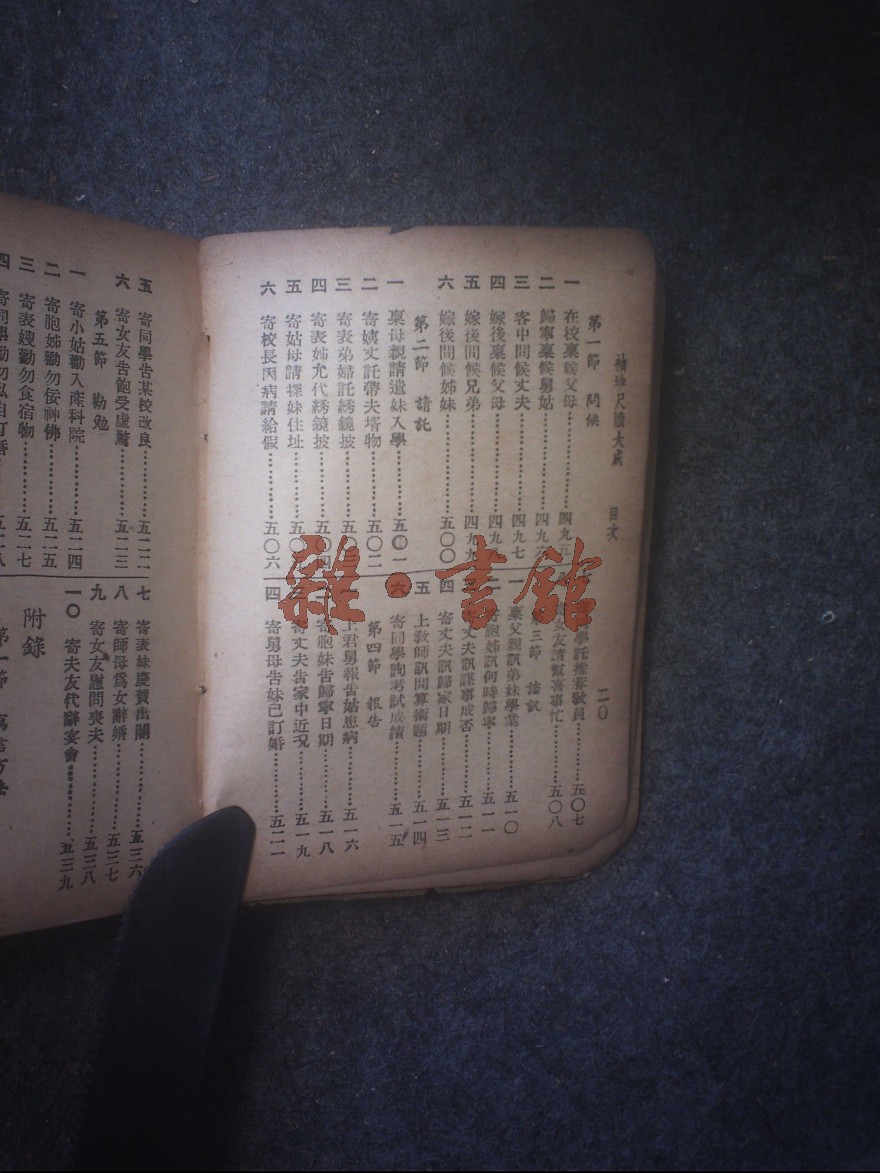 袖珍尺牘大成 目次 二〇
第一節 問候
一 在校稟候父母…………四九五
二 歸寧稟候舅姑…………四九六
三 客中問候丈夫…………四九七
四 嫁後稟候父母…………四九八
五 嫁後問候兄弟…………四九九
六 嫁後問候姊妹…………五〇〇
第二節 請託
一 稟母親請遣妹入學…………五〇一
二 寄姨丈託帶夫壻物…………五〇二
三 寄表弟婦託綉鏡披…………五〇三
四 寄表姊允代綉鏡披…………五〇四
五 寄姑母請探妹住址…………五〇
六 寄校長因病請給假…………五〇六
學託推荐教員…………五〇七
女友請幫喜事忙…………五〇八
三節 諮訊
一 稟父親訊弟妹學業…………五一〇
二 胞姊訊何時歸寧…………五一一
丈夫訊謀事成否…………五一二
四 寄丈夫訊歸家日期…………五一三
五 上教師訊問算術題…………五一四
六 寄同學詢考試成績…………五一五
第四節 報告
一 上君舅報告姑患病…………五一六
二 寄胞妹告歸寧日期…………五一八
三 寄丈夫告家中近況…………五一九
四 寄舅母告妹已訂婚…………五二一
五 寄同學告某校改良…………五二二
六 寄女友告飽受虛驚…………五二三
第五節 勸勉
一 寄小姑勸入產科院…………五二四
二 寄胞姊勸勿佞神佛…………五二五
三 寄表嫂勸勿食宿物…………五二七
四 寄同學勸勿私自訂婚…………五二八
七 寄表妹慶賀出閣…………五三六
八 寄師母爲女辭婚…………五三七
九 寄女友慰問喪夫…………五三八
一〇 寄夫友代辭宴會…………五三九
附錄
第一節 寫信方法
雜·書館